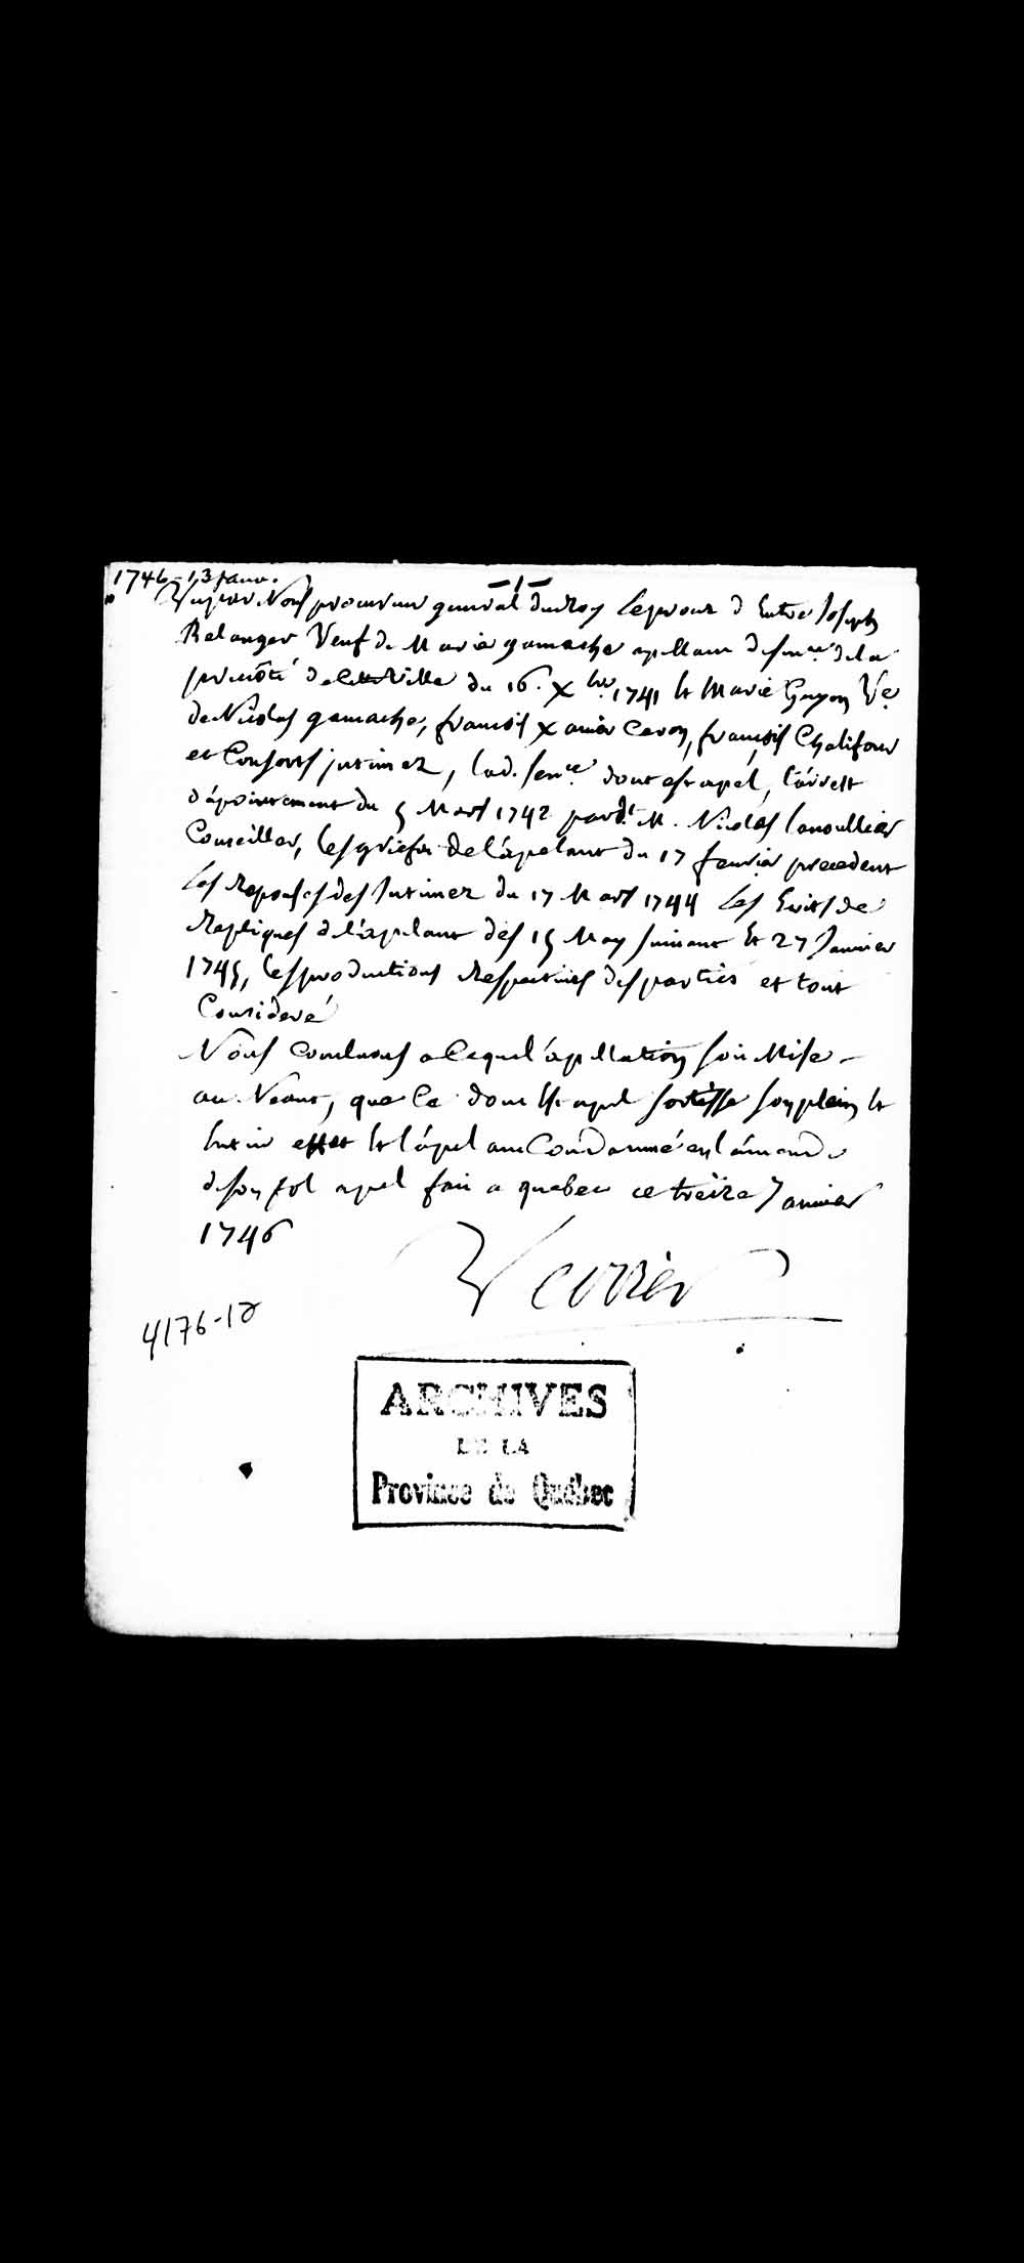 1746-13 Janv.
-1-
Vu par Nous procureur general du Roy Le procez d'Entre Joseph
Belanger Veuf de Marie gamache apellant de sence de la
prevôté de cette Ville du 16. Xbre 1741 Et Marie Guyon Ve
de Nicolas gamache, francois Xavier Caron, françois Chalifour
et Consorts jntimez, lad. sence dont est apel, l'arrest
d'apointement du 5 Mars 1742 pardt M. Nicolas lanoullier
Conseiller, les griefs de l'apelant du 17 fevrier precedent
Les Reponses des Intimez du 17 Mars 1744 Les Ecrits de
Repliques de l'apelant des 15 May suivant Et 27 Janvier
1745, les productions Respectives des parties et tout
Consideré
Nous Concluons a Ce quel'apellation soit Mise
au Neant, que Ce dont Est apel sortisse son plein Et
Entier effet Et l'apelant Condamné en l'amende
de son fol apel fait a quebec ce treize Janvier
1746
Verrier
4176-12
ARCHIVES
DE LA
Province de Québec